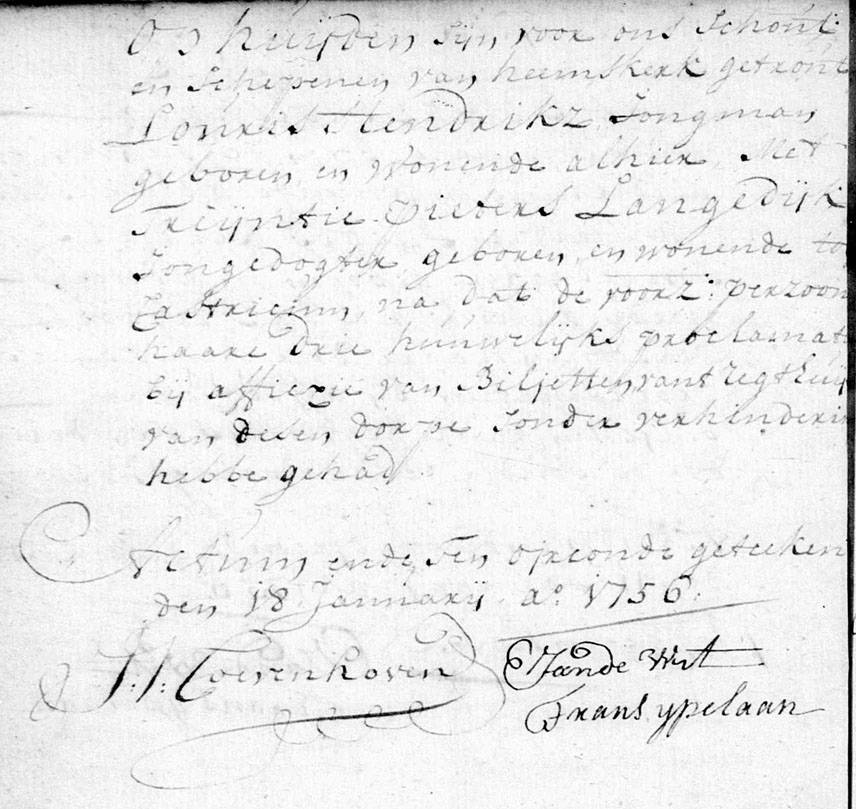 Op huijden sijn voor ons Schout
en Schepenen van heemskerk getrout
Louris Hendrikz Jongman
geboren en Wonende alhier, Met
Treijntie Pieters Langedijk
Jongedogter geboren, en wonende to
Castricum, na dat de voorz: perzoon
haare drie huuwelijks proclamati
bij affiezie van Biljetten, vant regthuij
van desen dorpe sonder verhinderin
hebbe gehad
Actum ende ten oirconde geteeken
den 18 Januarij a° 1756.
J:J: Coesenhoven Jan de Wit
Frans ypelaan